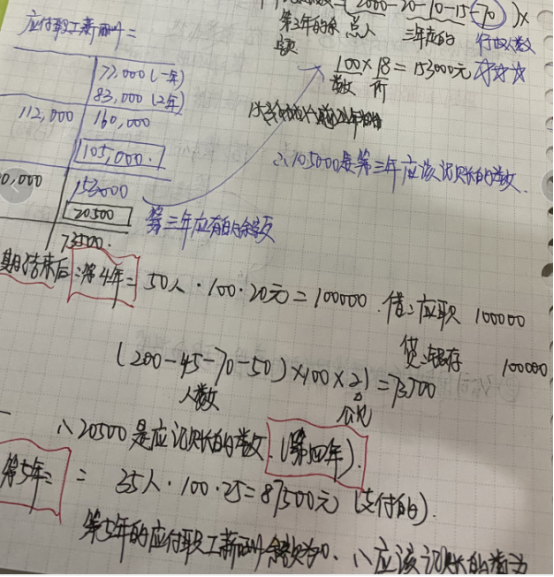 2000-20-10-15-70 ) ×
应付职工薪酬=
第3年的余额 总人 三年应的 行的人数
77,000 (一年)
100×18=153000元 ☆☆☆
83,000 (2年)
数 价
112,000 160,000
105,000.
∴105000是第三年应该记账的数.
0,000 153000
20500 第三年应有的余额
73500.
期结束后 ∴第4年= 50人·100·20元=100000. 借:应职 100000
贷:银存 100000
(200-45-70-50)×100×21=73500
人数 公允
∴20500是应记账的数.(第四年).
第5年: = 35人·100·25=87500元 (支付的).
第5年的应付职工薪酬余额为0. ∴应该记账的为